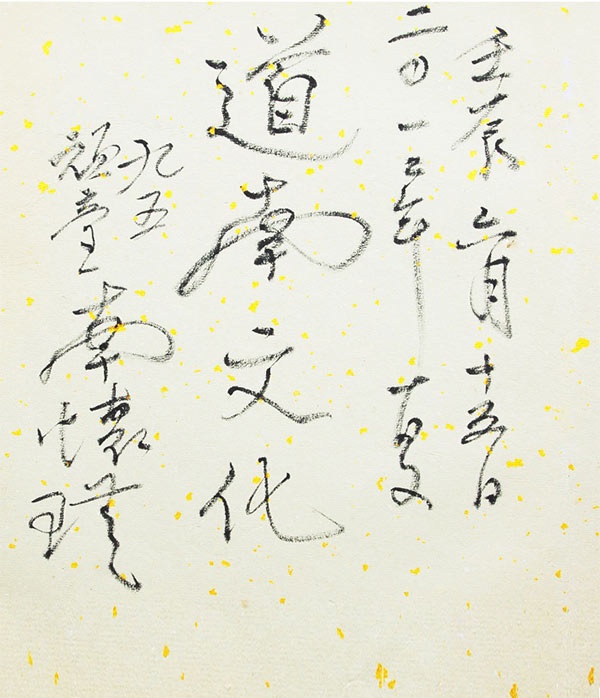 壬辰六月十五日
二〇一二年夏
道南文化
九五
頑童
南懷瑾